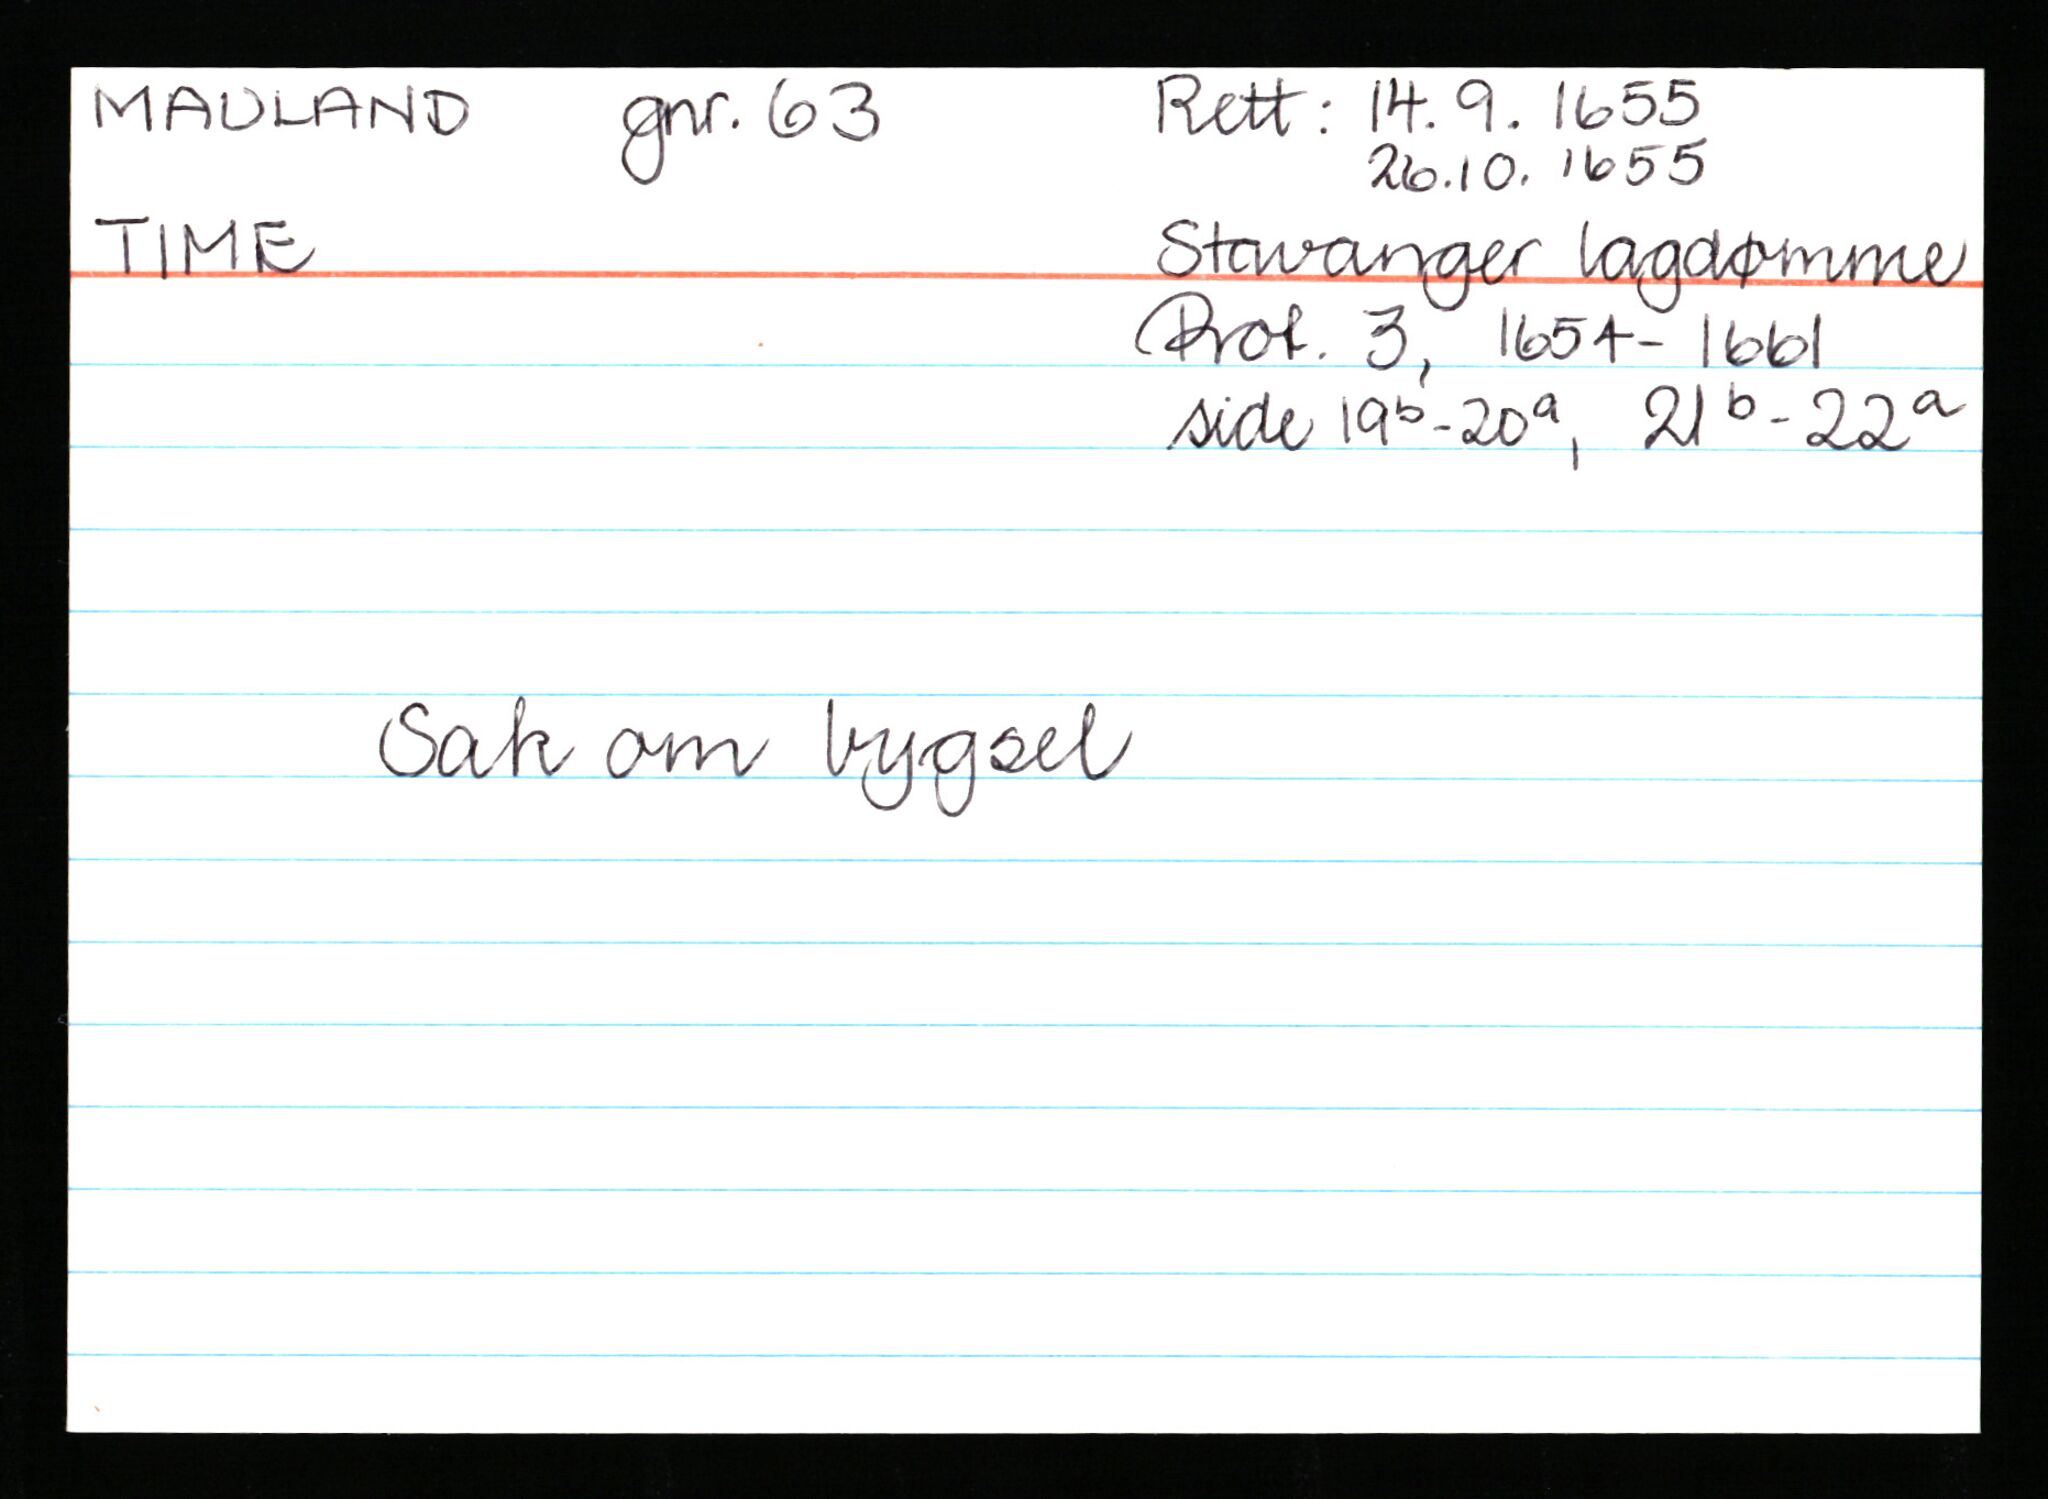 MAULAND gnr. 63 Rett: 14. 9. 1655
26.10. 1655
TIME Stavanger lagdømme
Prot. 3, 1654-1661
side 19b-20a, 21b-22a
Sak om bygsel